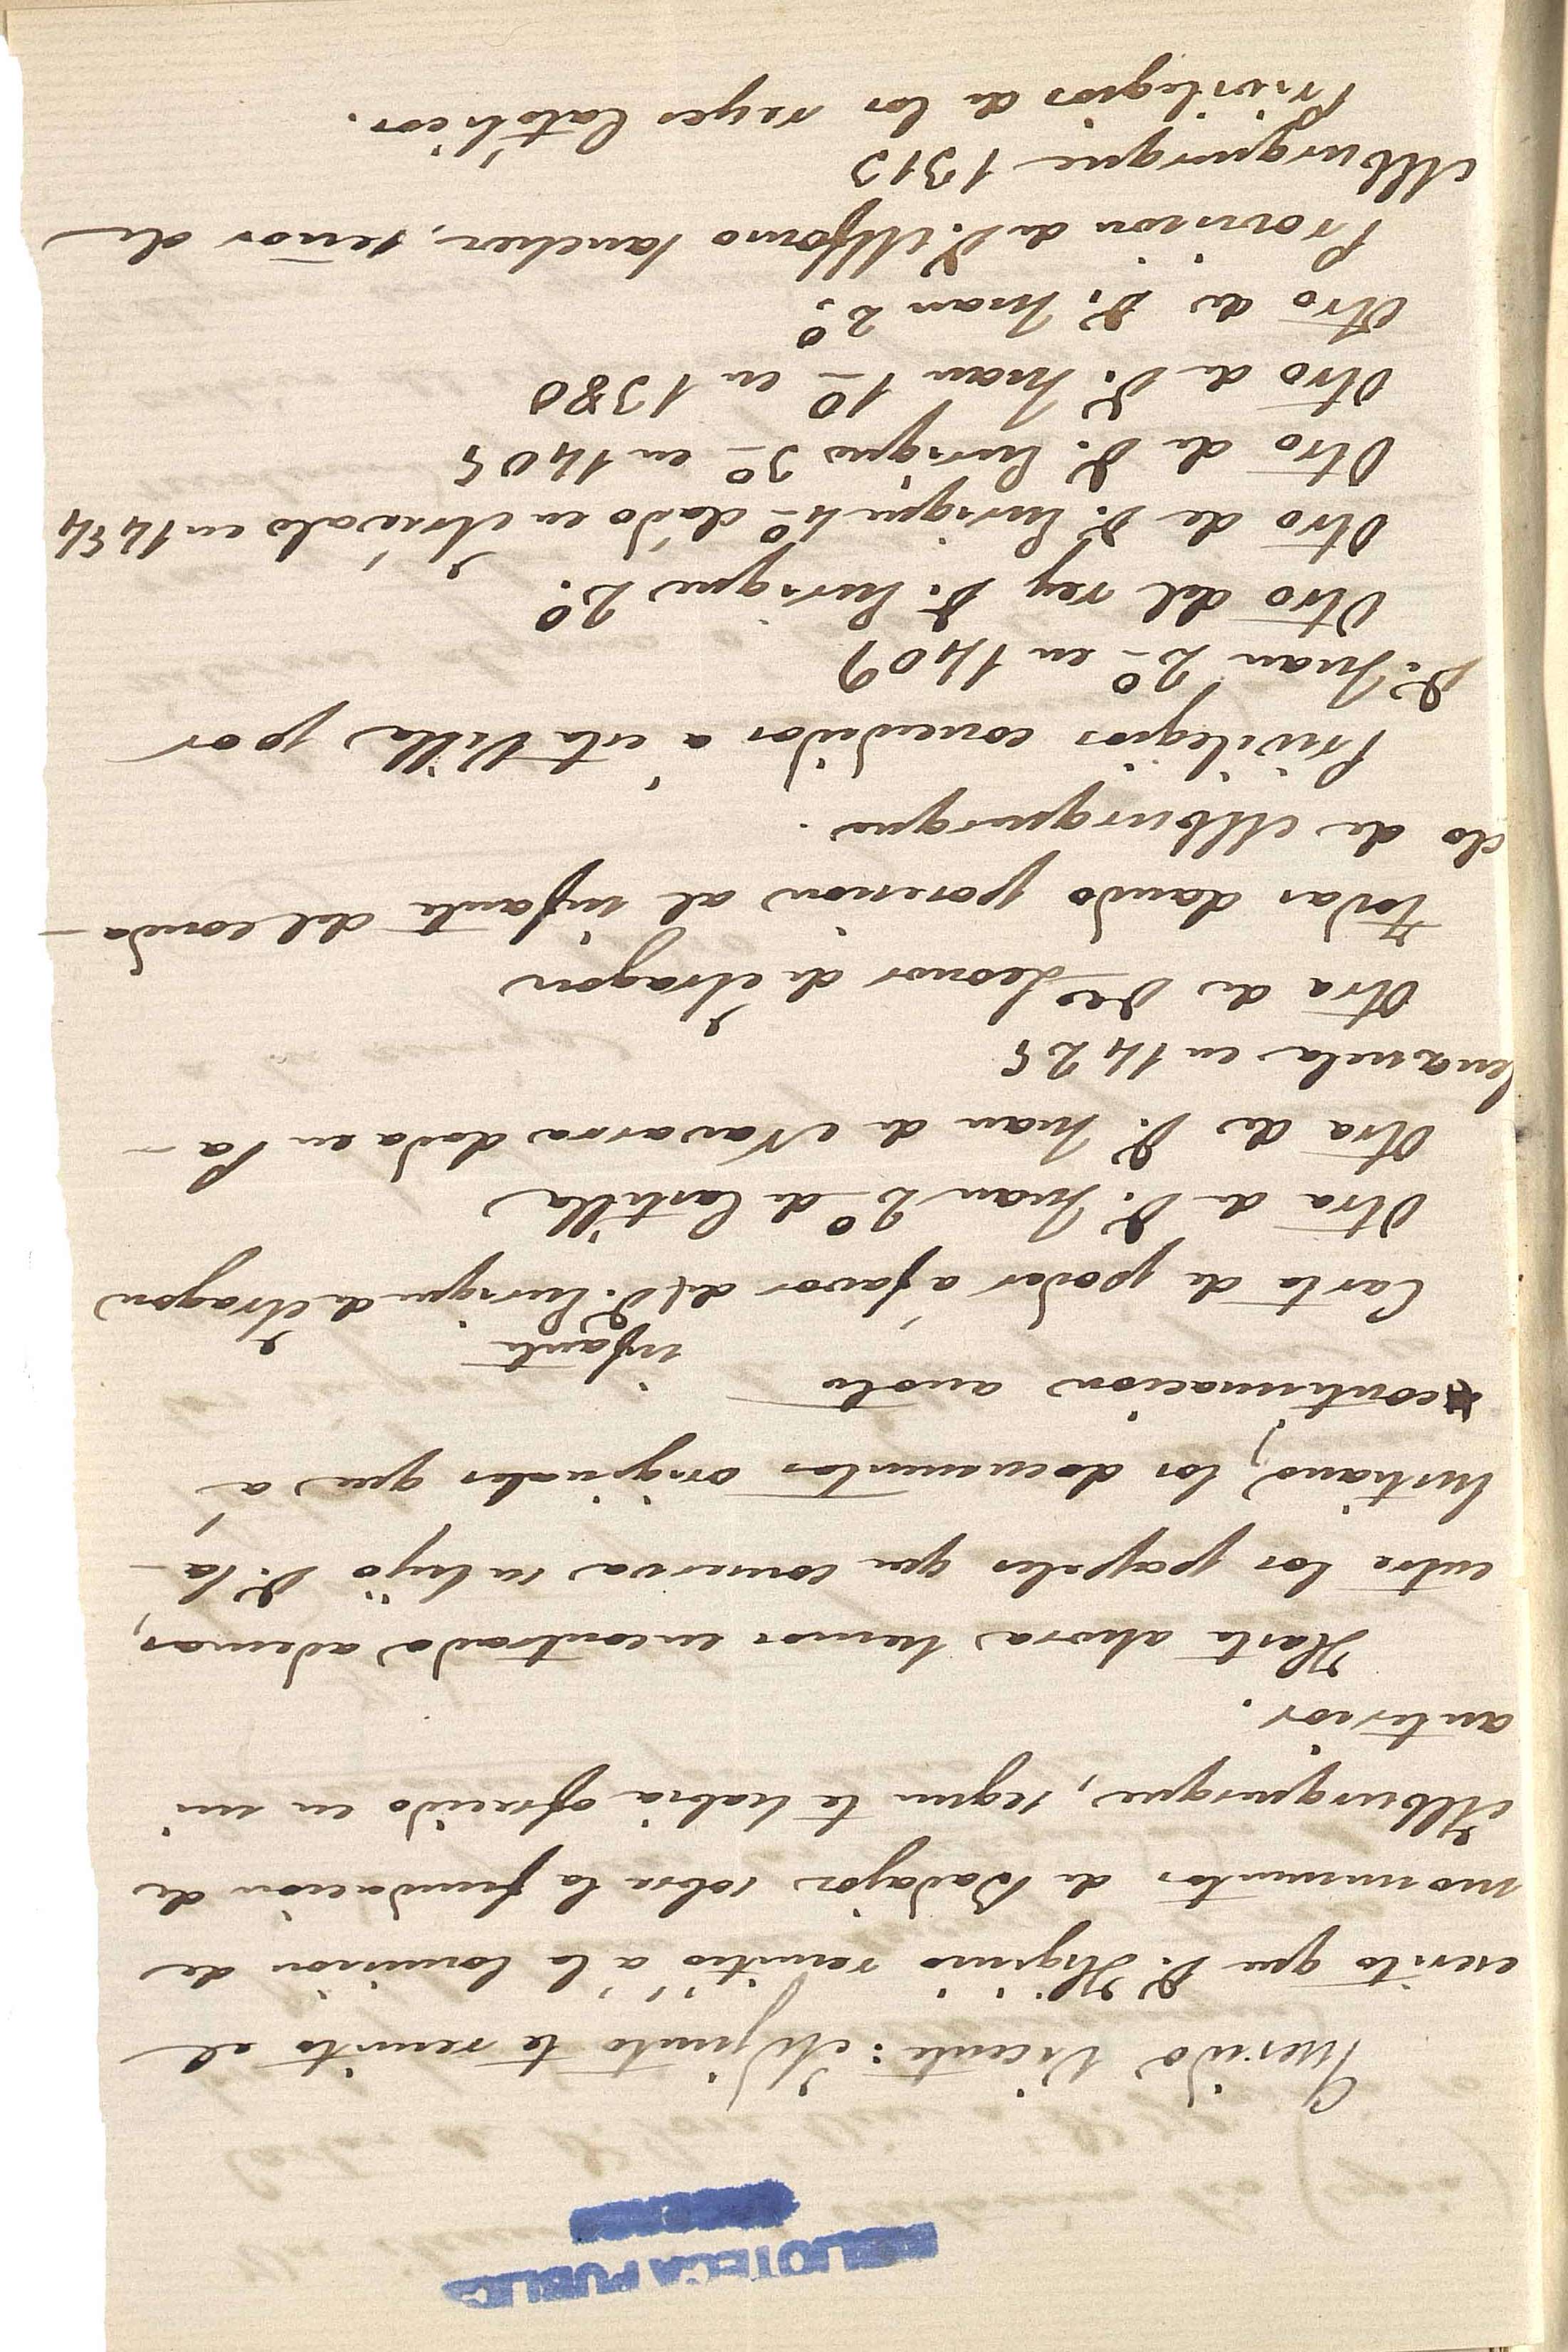 BIBLIOTECA PUBLIC
Querido Vicente: Adjunto te remito el
escrito que D. Higinio remitió á la Comision de
monumentos de Badajoz sobre la fundacion de
Alburquerque, segun te habia ofrecido en mi
anterior.
Hasta ahora hemos encontrado ademas,
entre los papeles que conserva su hijo D. Ca-
lustiano, los documentos originales que á
continuacion anoto
infante
Carta de poder á favor del D. Enrique de Aragon
Otra de D. Juan 2º de Castilla
Otra de D. Juan de Navarra dada en Pa-
lenzuela en 1425
Otra de Dª Leonor de Aragon
Todas dando posesion al infante del conda-
do de Alburquerque.
Privilegios concedidos á esta Villa por
D. Juan 2º en 1409
Otro del rey D. Enrique 2º.
Otro de D. Enrique 4º dado en Arévalo en 1454
Otro de D. Enrique 3º en 1405
Otro de D. Juan 1º en 1380
Otro de D. Juan 2º.
Provision de D. Alfonso Sanchez, señor de
Alburquerque 1313
Privilegios de los reyes Católicos.